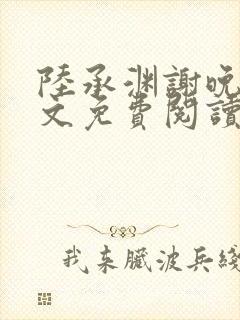 陸承渊謝晚
文免費閱讀
我来臟波兵綫